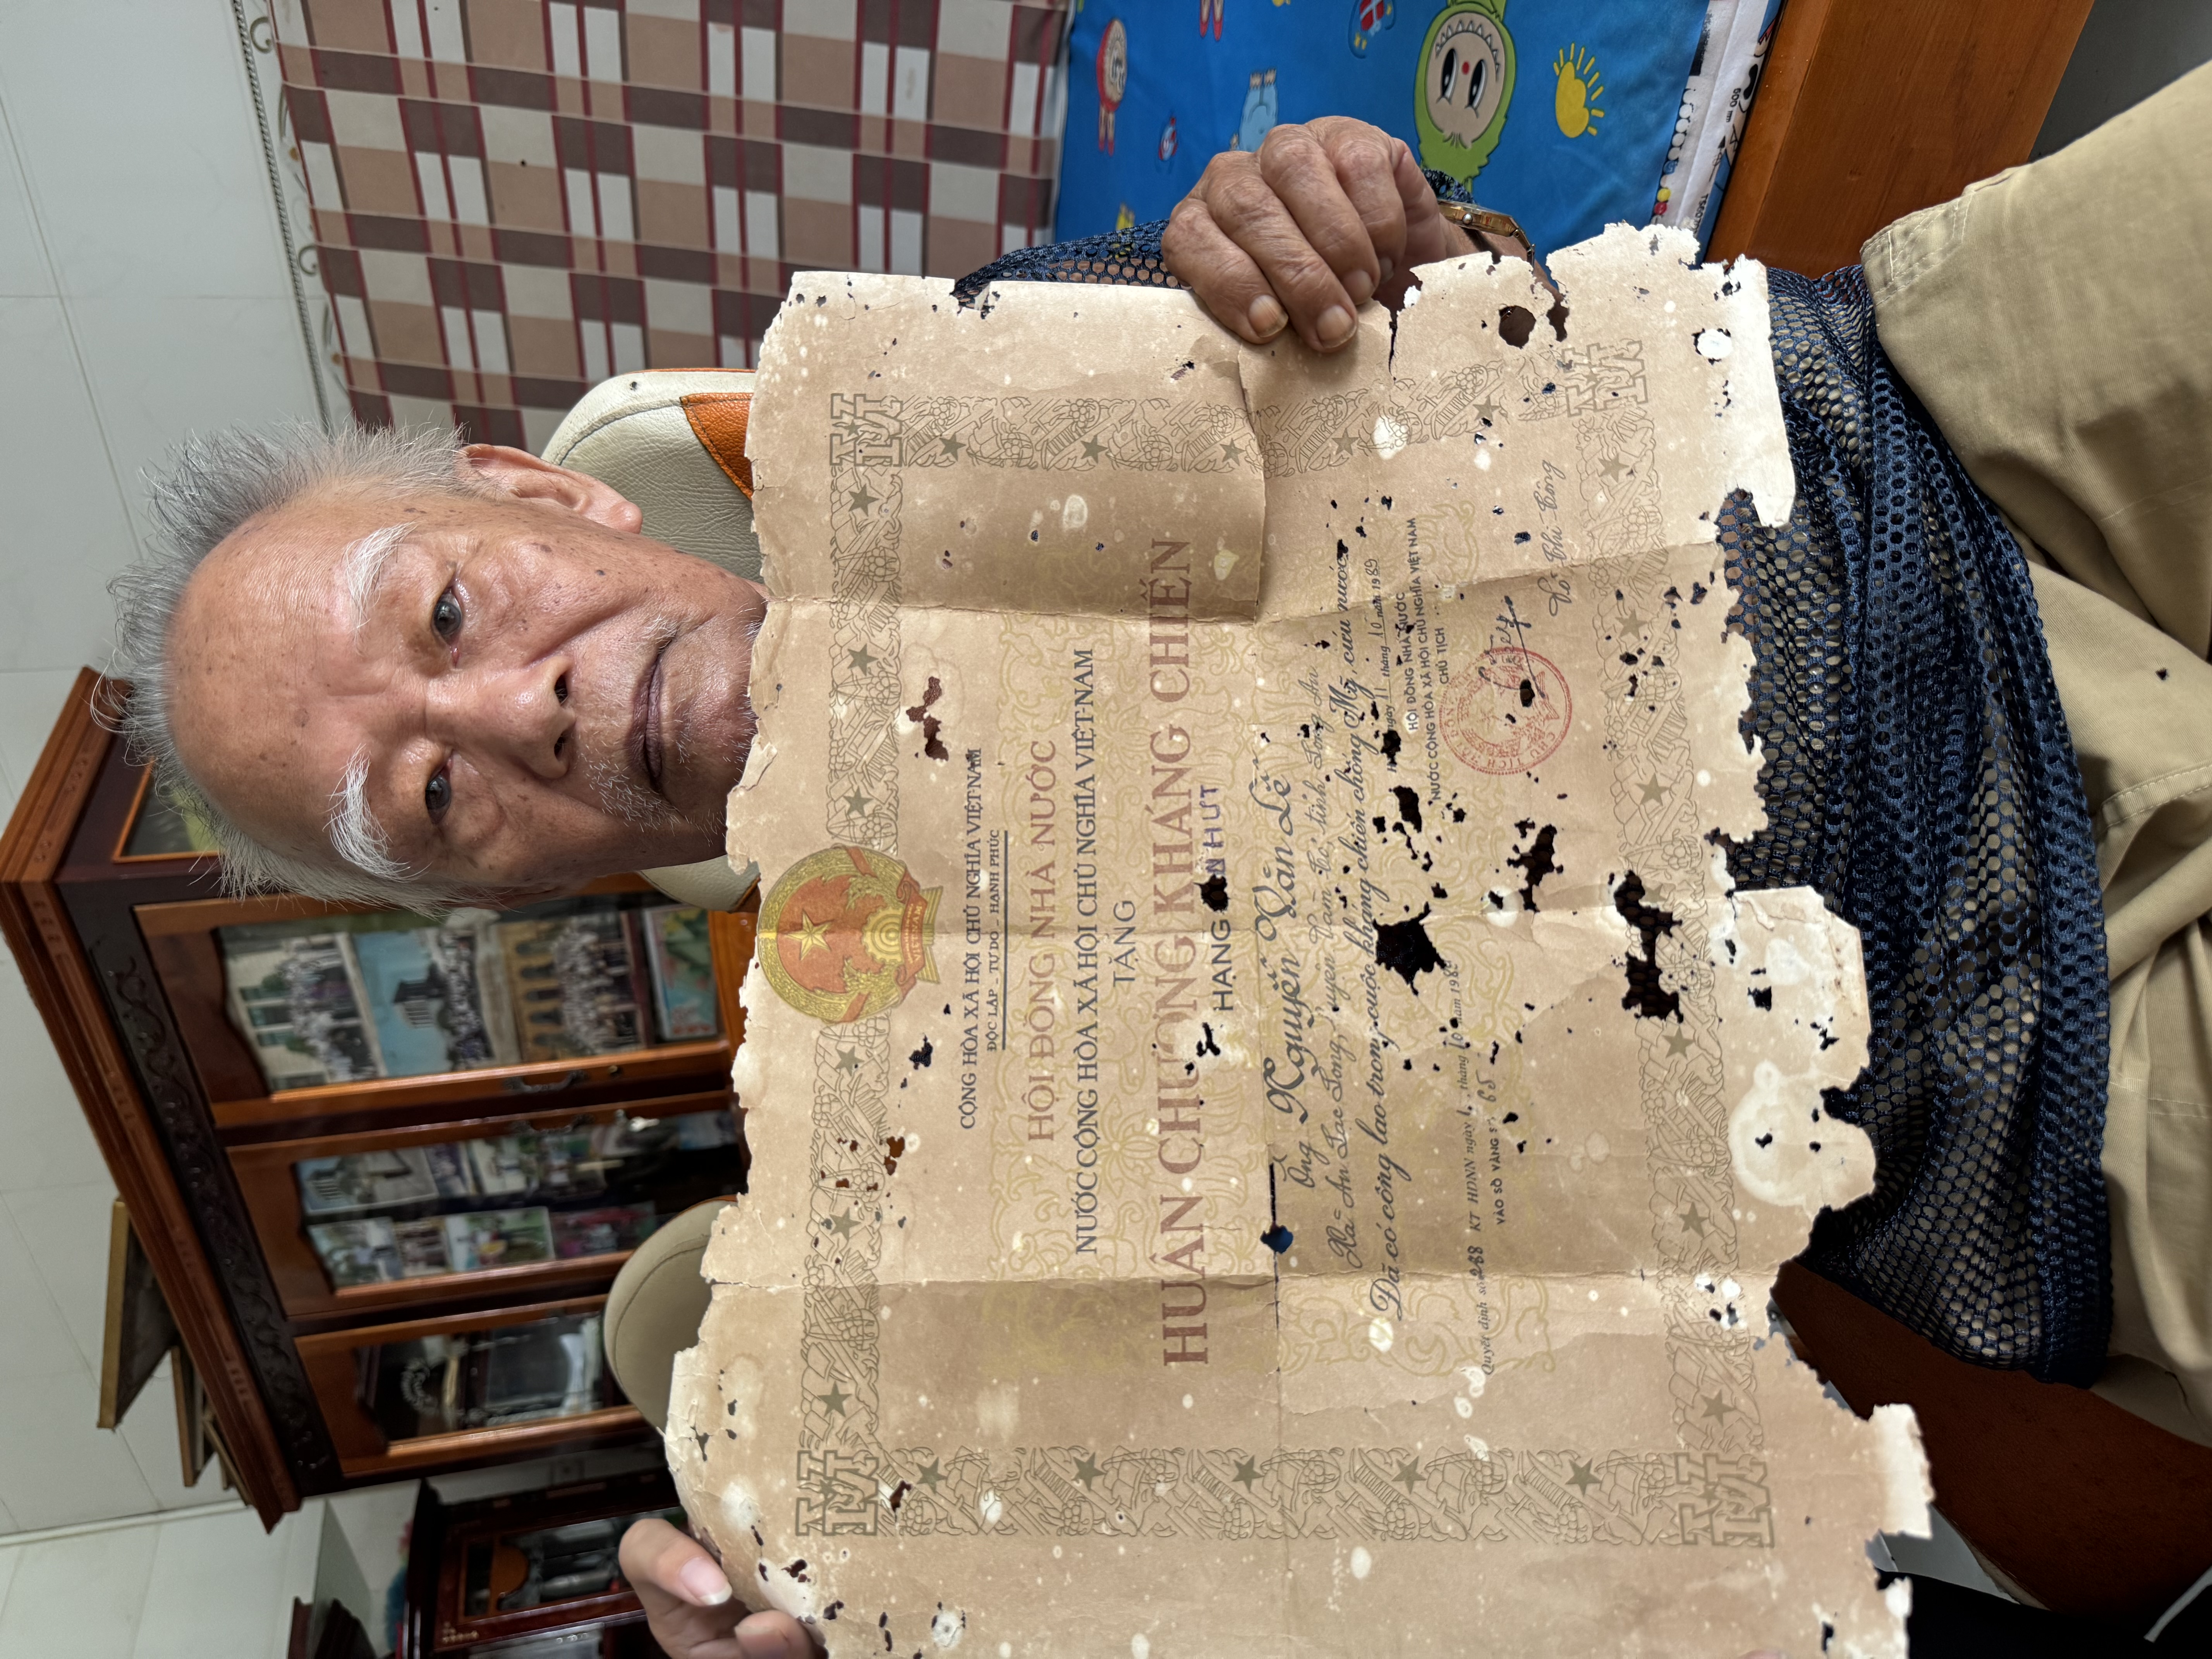 CỘNG HÒA XÃ HỘI CHỦ NGHĨA VIỆT NAM
ĐỘC LẬP _ TỰ DO _ HẠNH PHÚC
HỘI ĐỒNG NHÀ NƯỚC
NƯỚC CỘNG HÒA XÃ HỘI CHỦ NGHĨA VIỆT NAM
TẶNG
HUÂN CHƯƠNG KHÁNG CHIẾN
HẠNG NHỨT
Ông Nguyễn Văn Lê
Xã An Lạc Long, huyện Vàm Cỏ, tỉnh Long An
Đã có công lao trong cuộc kháng chiến chống Mỹ, cứu nước
ngày 11 tháng 10 năm 1989
HỘI ĐỒNG NHÀ NƯỚC
NƯỚC CỘNG HÒA XÃ HỘI CHỦ NGHĨA VIỆT NAM
CHỦ TỊCH
Quyết định số 288 KT HĐNN ngày tháng 10 năm 1989
VÀO SỔ VÀNG SỐ 65
CHỦ TỊCH
Võ Chí Công